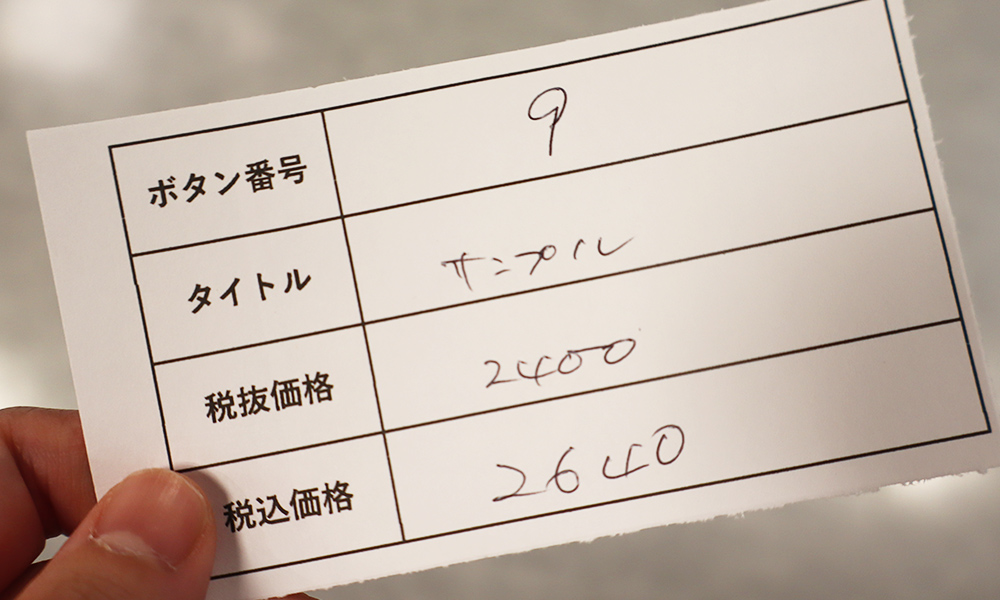 ボタン番号 9
タイトル サンプル
税抜価格 2400
税込価格 2640